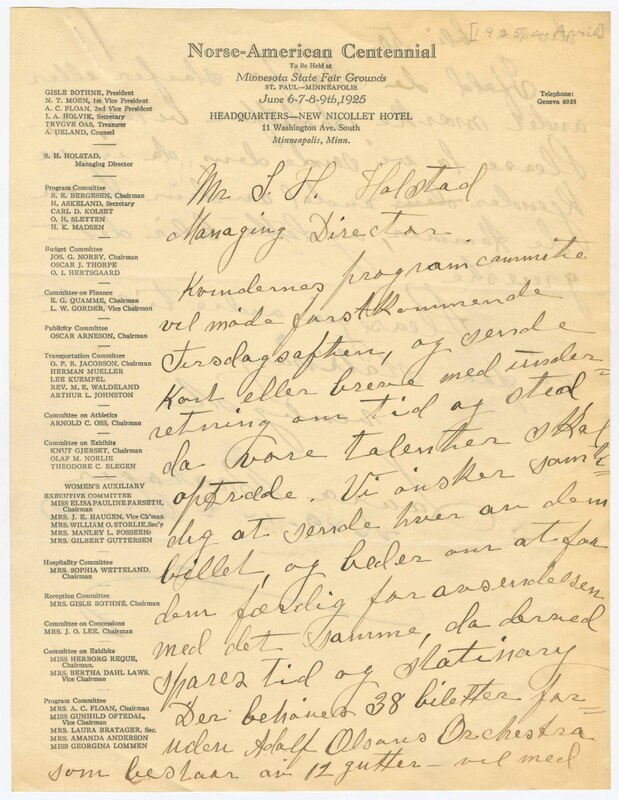 [1925 - April]
Norse-American Centennial
To Be Held at
Minnesota State Fair Grounds
ST. PAUL—MINNEAPOLIS
June 6-7-8-9th, 1925
HEADQUARTERS—NEW NICOLLET HOTEL
11 Washington Ave. South
Minneapolis, Minn.
Telephone:
Geneva 6935
GISLE BOTHNE, President
N. T. MOEN, 1st Vice President
A. C. FLOAN, 2nd Vice President
J. A. HOLVIK, Secretary
TRYGVE OAS, Treasurer
A. UELAND, Counsel
S. H. HOLSTAD,
Managing Director
Program Committee
B. E. BERGESEN, Chairman
H. ASKELAND, Secretary
CARL D. KOLSET
O. H. SLETTEN
H. K. MADSEN
Budget Committee
JOS. G. NORBY, Chairman
OSCAR J. THORPE
O. I. HERTSGAARD
Committee on Finance
E. G. QUAMME, Chairman
L. W. GORDER, Vice Chairman
Publicity Committee
OSCAR ARNESON, Chairman
Transportation Committee
O. P. B. JACOBSON, Chairman
HERMAN MUELLER
LEE KUEMPEL
REV. M. E. WALDELAND
ARTHUR L. JOHNSTON
Committee on Athletics
ARNOLD C. OSS, Chairman
Committee on Exhibits
KNUT GJERSET, Chairman
OLAF M. NORLIE
THEODORE C. BLEGEN
WOMEN'S AUXILIARY
EXECUTIVE COMMITTEE
MISS ELISA PAULINE FARSETH,
Chairman
MRS. J. E. HAUGEN, Vice Ch'man
MRS. WILLIAM O. STORLIE, Sec'y
MRS. MANLEY L. FOSSEEN
MRS. GILBERT GUTTERSEN
Hospitality Committee
MRS. SOPHIA WETTELAND,
Chairman
Reception Committee
MRS. GISLE BOTHNE, Chairman
Committee on Concessions
MRS. J. O. LEE, Chairman
Committee on Exhibits
MISS HERBORG REQUE,
Chairman.
MRS. BERTHA DAHL LAWS,
Vice Chairman
Program Committee
MRS. A. C. FLOAN, Chairman
MISS GUNHILD OFTEDAL,
Vice Chairman
MRS. LAURA BRATAGER, Sec.
MRS. AMANDA ANDERSON
MISS GEORGINA LOMMEN
Mr. S. H. Holstad
Managing Director
Kvindernes programcommitte
vil möde førstkommende
Tirsdagsaften, og sende
Kort eller breve med under-
retning om tid og sted
da vore talenter skal
optræde. Vi önsker samti-
dig at sende hver av dem
billet, og beder om at faa
dem færdig for avsendelsen
med det samme, da derved
spares tid og stationary
Der behöves 38 biletter for-
uden Adolf Olsons Orchestra
som bestaar av 12 gutter – vil med